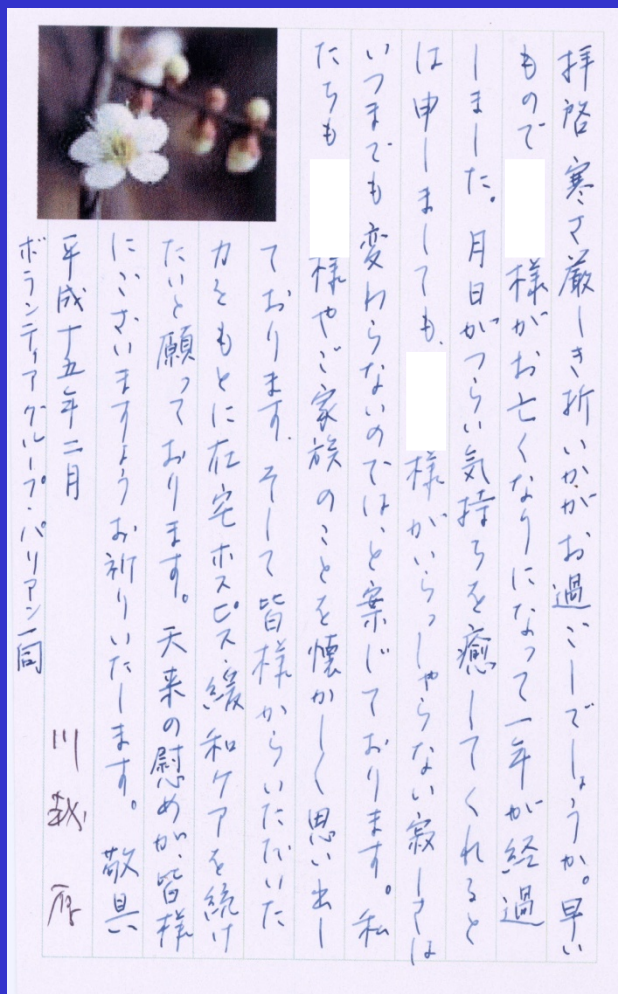 拝啓 寒さ厳しき折いかがお過ごしでしょうか。早い
もので 様がお亡くなりになって一年が経過
しました。月日がつらい気持ちを癒してくれると
は申しましても、 様がいらっしゃらない寂しさは
いつまでも変わらないのでは、と案じております。私
たちも 様やご家族のことを懐かしく思い出し
ております。そして皆様からいただいた
力をもとに在宅ホスピス・緩和ケアを続け
たいと願っております。天来の慰めが、皆様
にございますようお祈りいたします。 敬具
平成十五年二月
川越 厚
ボランティアグループ・パリアン一同